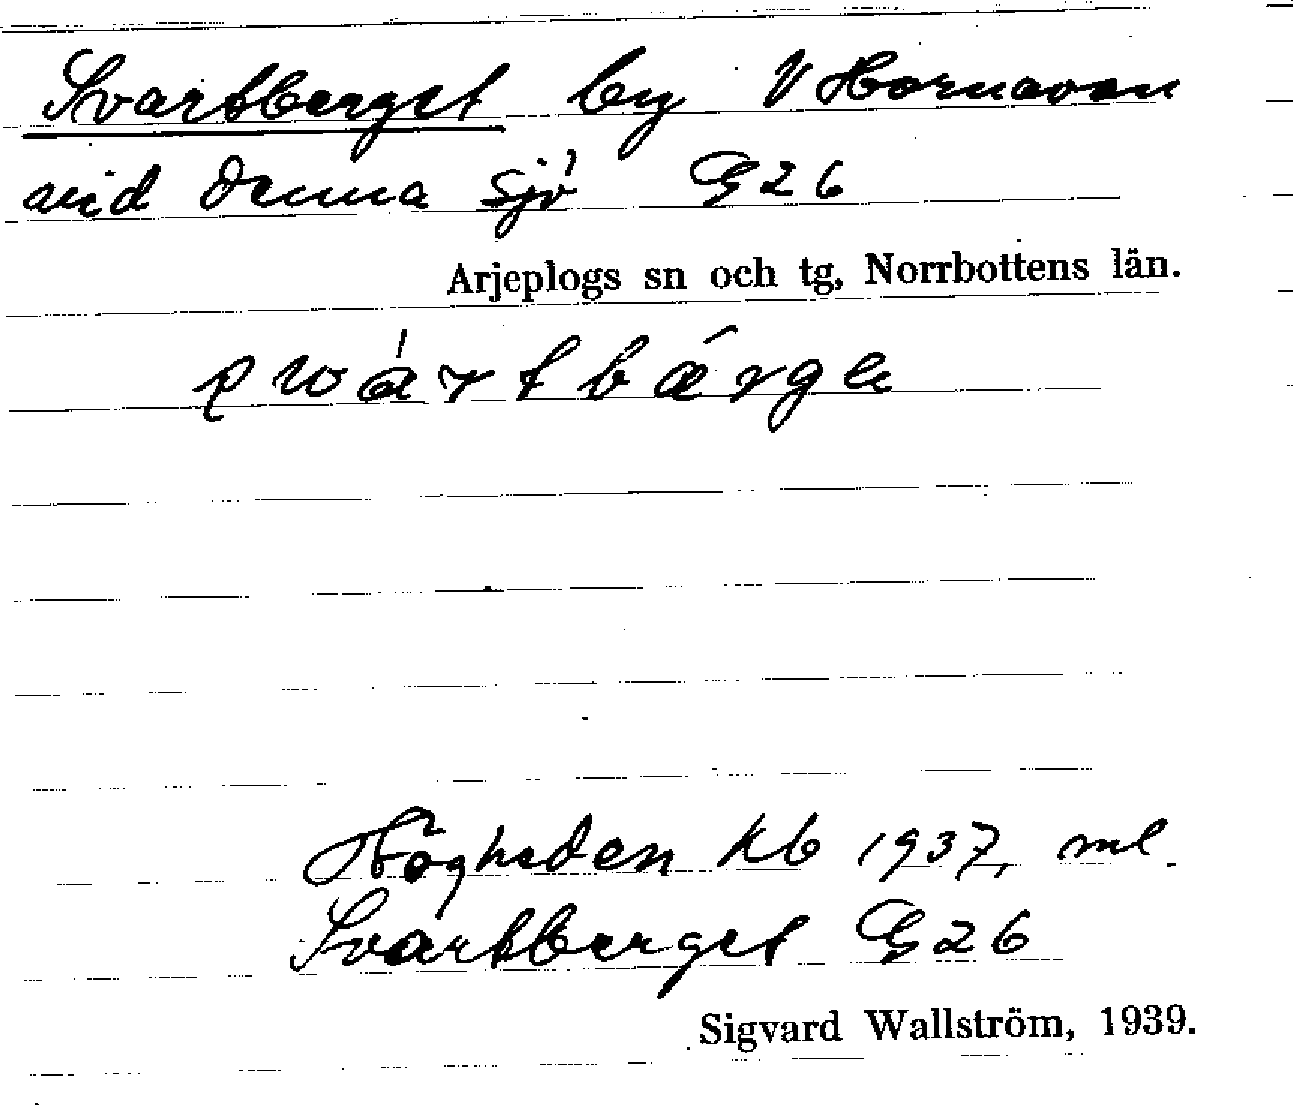 Svartberget by V Hornavan
vid denna sjö G26
Arjeplogs sn och tg, Norrbottens län.
Högheden kb 1937, ml.
Svartberget G26
Sigvard Wallström, 1939.